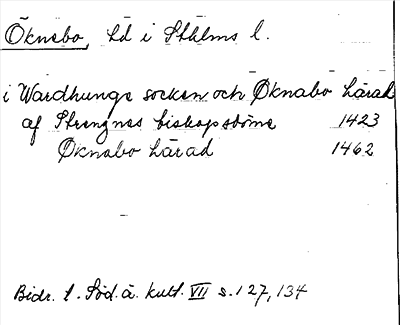 Öknebo, hd i Sthlms l.
i Wardhunge socken och Øknabo härad
af Strengnes biskopsdöme 1423
Øknabo härad 1462
Bidr. t. Söd. ä. kult. VII s. 127, 134